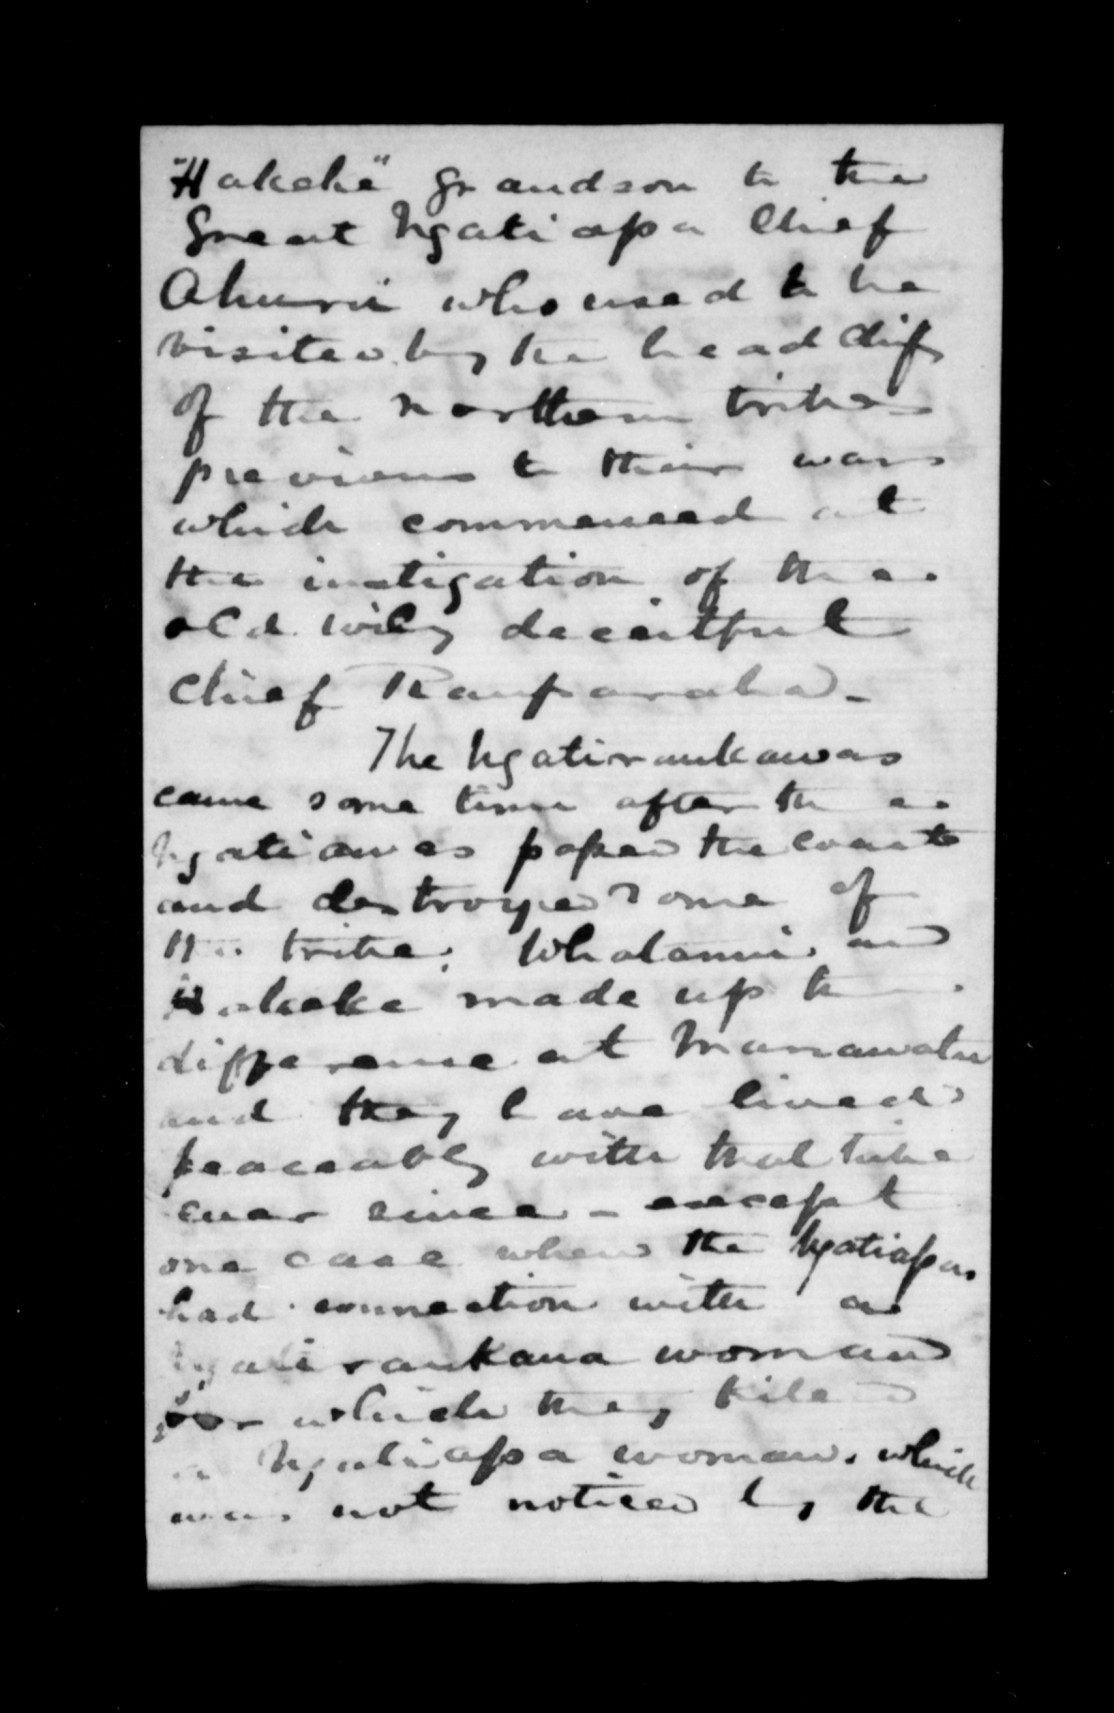 "Hakeke" grandson to the
Great Ngatiapa Chief
Ahuru who used to be
visited by the head chiefs
of the northern tribes
previous to their wars
which commenced at
the instigation of the
old wily deceitful
Chief Rauparaha -
The Ngatiraukawas
came some time after the
Ngatiawas passed the coast
and destroyed some of
the tribe. Whatanui and
Hakeke made up the
difference at Manawatu
and they have lived
peaceably with that tribe
ever since - except
one case when the Ngatiapas
had connection with a
Ngatiraukaua woman
for which they killed
a Ngatiapa woman. which
was not noticed by the